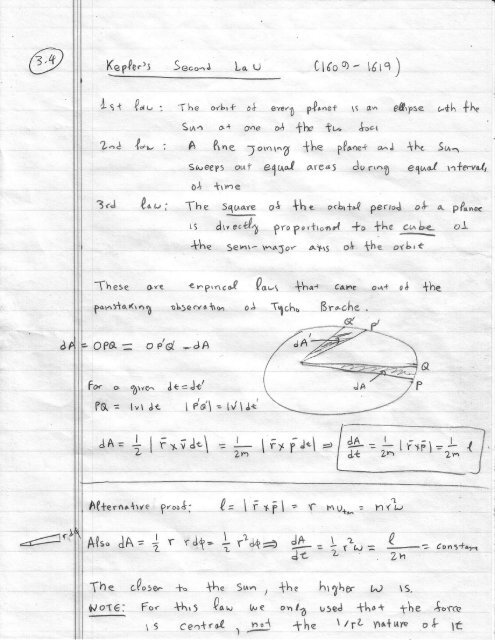 3.4
Kepler's Second Law (1609 - 1619)
1st law : The orbit of every planet is an ellipse with the
Sun at one of the two foci
2nd law : A line joining the planet and the Sun
sweeps out equal areas during equal intervals
of time
3rd law : The square of the orbital period of a planet
is directly proportional to the cube of
the semi-major axis of the orbit
These are empirical laws that came out of the
painstaking observation of Tycho Brache.
Q' P'
dA = OPQ = OP'Q' = dA
dA'
Q
For a given dt = dt'
dA P
PQ = |v| dt |P'Q'| = |v'| dt'
dA = 1/2 | r̄ x v̄ dt | = 1/2m | r̄ x p̄ dt | ⇒ dA/dt = 1/2m | r̄ x p̄ | = 1/2m l
Alternative proof: l = | r̄ x p̄ | = r m v_tan = m r² ω
r dφ
Also dA = 1/2 r r dφ = 1/2 r² dφ ⇒ dA/dt = 1/2 r² ω = l/2m = constant
The closer to the sun, the higher ω is.
NOTE: For this law we only used that the force
is central, not the 1/r2 nature of it